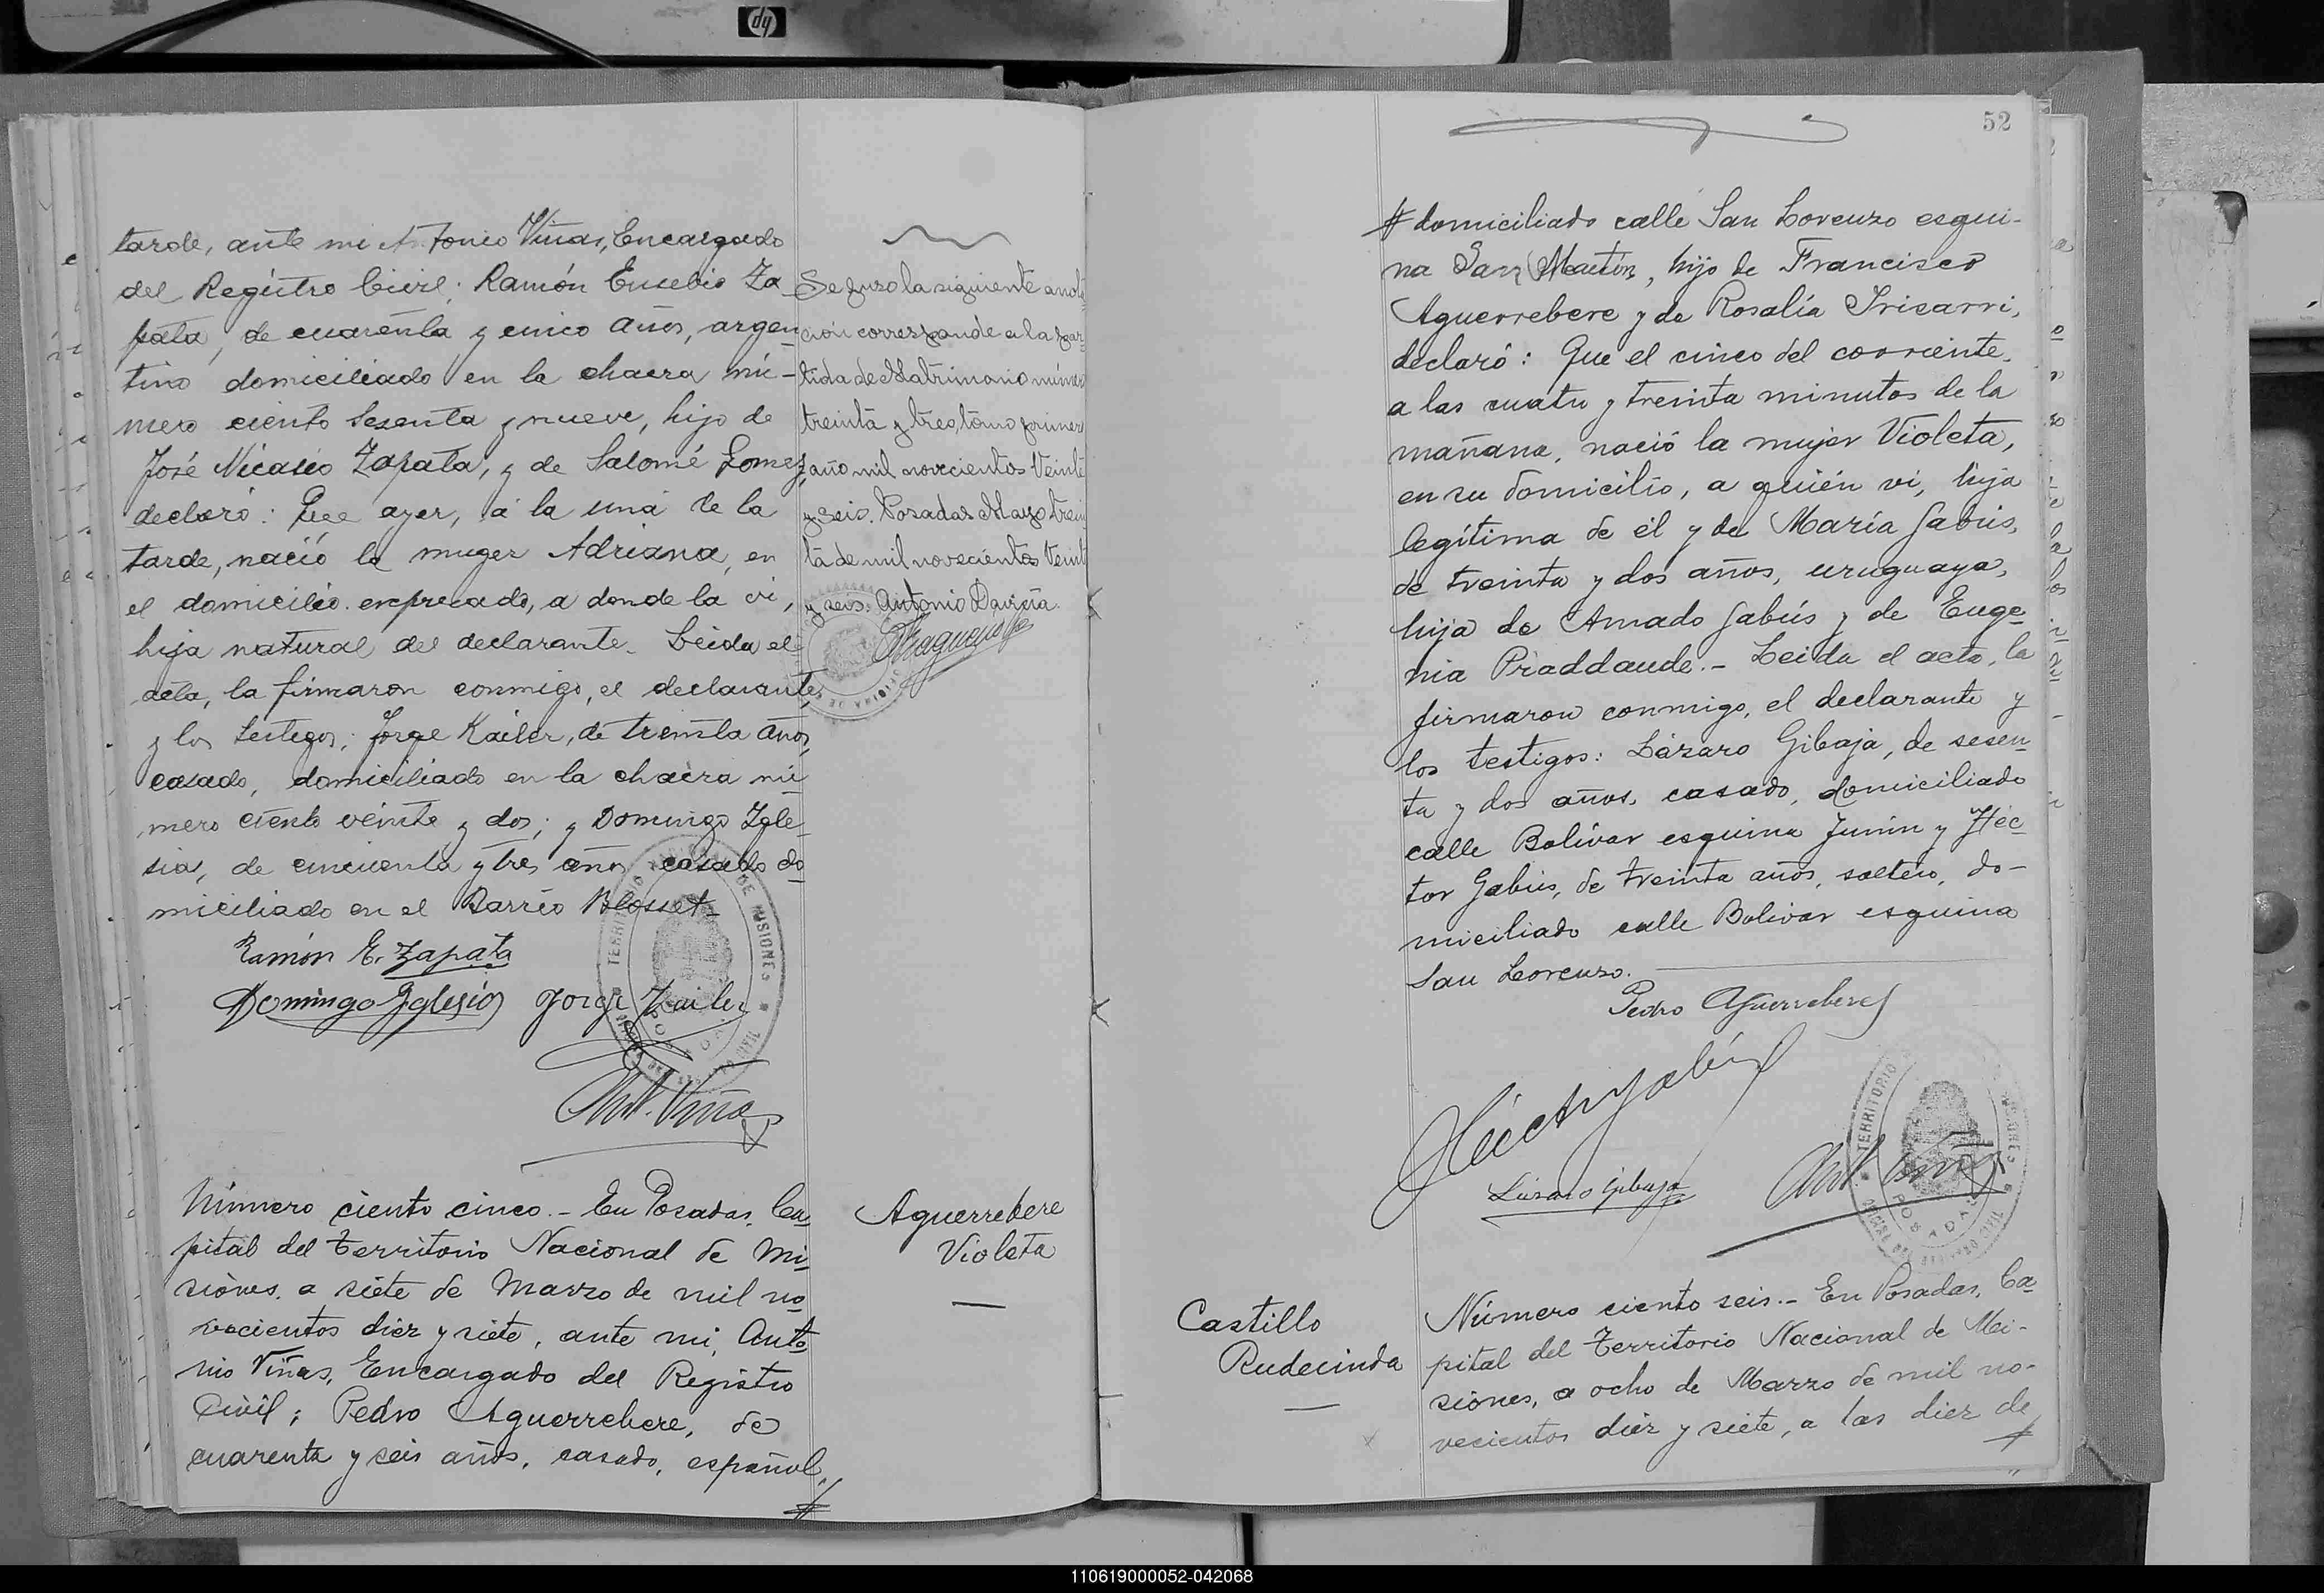 tarde, ante mi Antonio Viñas, Encargado
del Registro Civil; Ramón Eusebio Za
pata, de cuarenta y cinco años, argen
tino domiciliado en la chacra nú-
mero ciento sesenta y nueve, hijo de
José Nicasio Zapata, y de Salomé Gomez,
declaró: Que ayer, á la una de la
tarde, nació la muger Adriana, en
el domicilio expresado, a donde la vi,
hija natural del declarante. Leida el
acta, la firmaron conmigo, el declarante,
y los testigos; Jorge Kailer, de treinta años,
casado, domiciliado en la chacra nú
mero ciento veinte y dos; y Domingo Igle
sias, de cincuenta y tres años casado do
miciliado en el Barrio Blosset
Ramón E. Zapata
Domingo Iglesias Jorge Kailer
Ant. Viñas
Se puso la siguiente anota
ción corresponde a la par
tida de Matrimonio número
treinta y tres, tomo primero
año mil novecientos Veinte
y seis. Posadas Mayo trein
ta de mil novecientos Veinte
y seis. Antonio Daviña.
Número ciento cinco.- En Posadas, Ca
pital del Territorio Nacional de Mi
siones, a siete de Marzo de mil no
vecientos diez y siete, ante mi, Anto
nio Viñas, Encargado del Registro
Civil; Pedro Aguerrebere, de
cuarenta y seis años, casado, español,
#
Aguerrebere
Violeta
52
# domiciliado calle San Lorenzo esqui-
na San Martin, hijo de Francisco
Aguerrebere y de Rosalía Irisarri,
declaró: Que el cinco del corriente,
a las cuatro y treinta minutos de la
mañana, nació la mujer Violeta,
en su domicilio, a quién vi, hija
legítima de él y de María Gabús,
de treinta y dos años, uruguaya,
hija de Amado Gabús y de Euge
nia Praddaude.- Leida el acta, la
firmaron conmigo, el declarante y
los testigos: Lázaro Gibaja, de sesen
ta y dos años, casado, domiciliado
calle Bolívar esquina Junin y Héc
tor Gabús, de treinta años, soltero, do-
miciliado calle Bolívar esquina
San Lorenzo.
Pedro Aguerrebere
Héctor Gabús
Lázaro Gibaja
Ant. Viñas
Castillo
Rudecinda
Número ciento seis.- En Posadas, Ca
pital del Territorio Nacional de Mi-
siones, a ocho de Marzo de mil no-
vecientos diez y siete, a las diez de
#
110619000052-042068